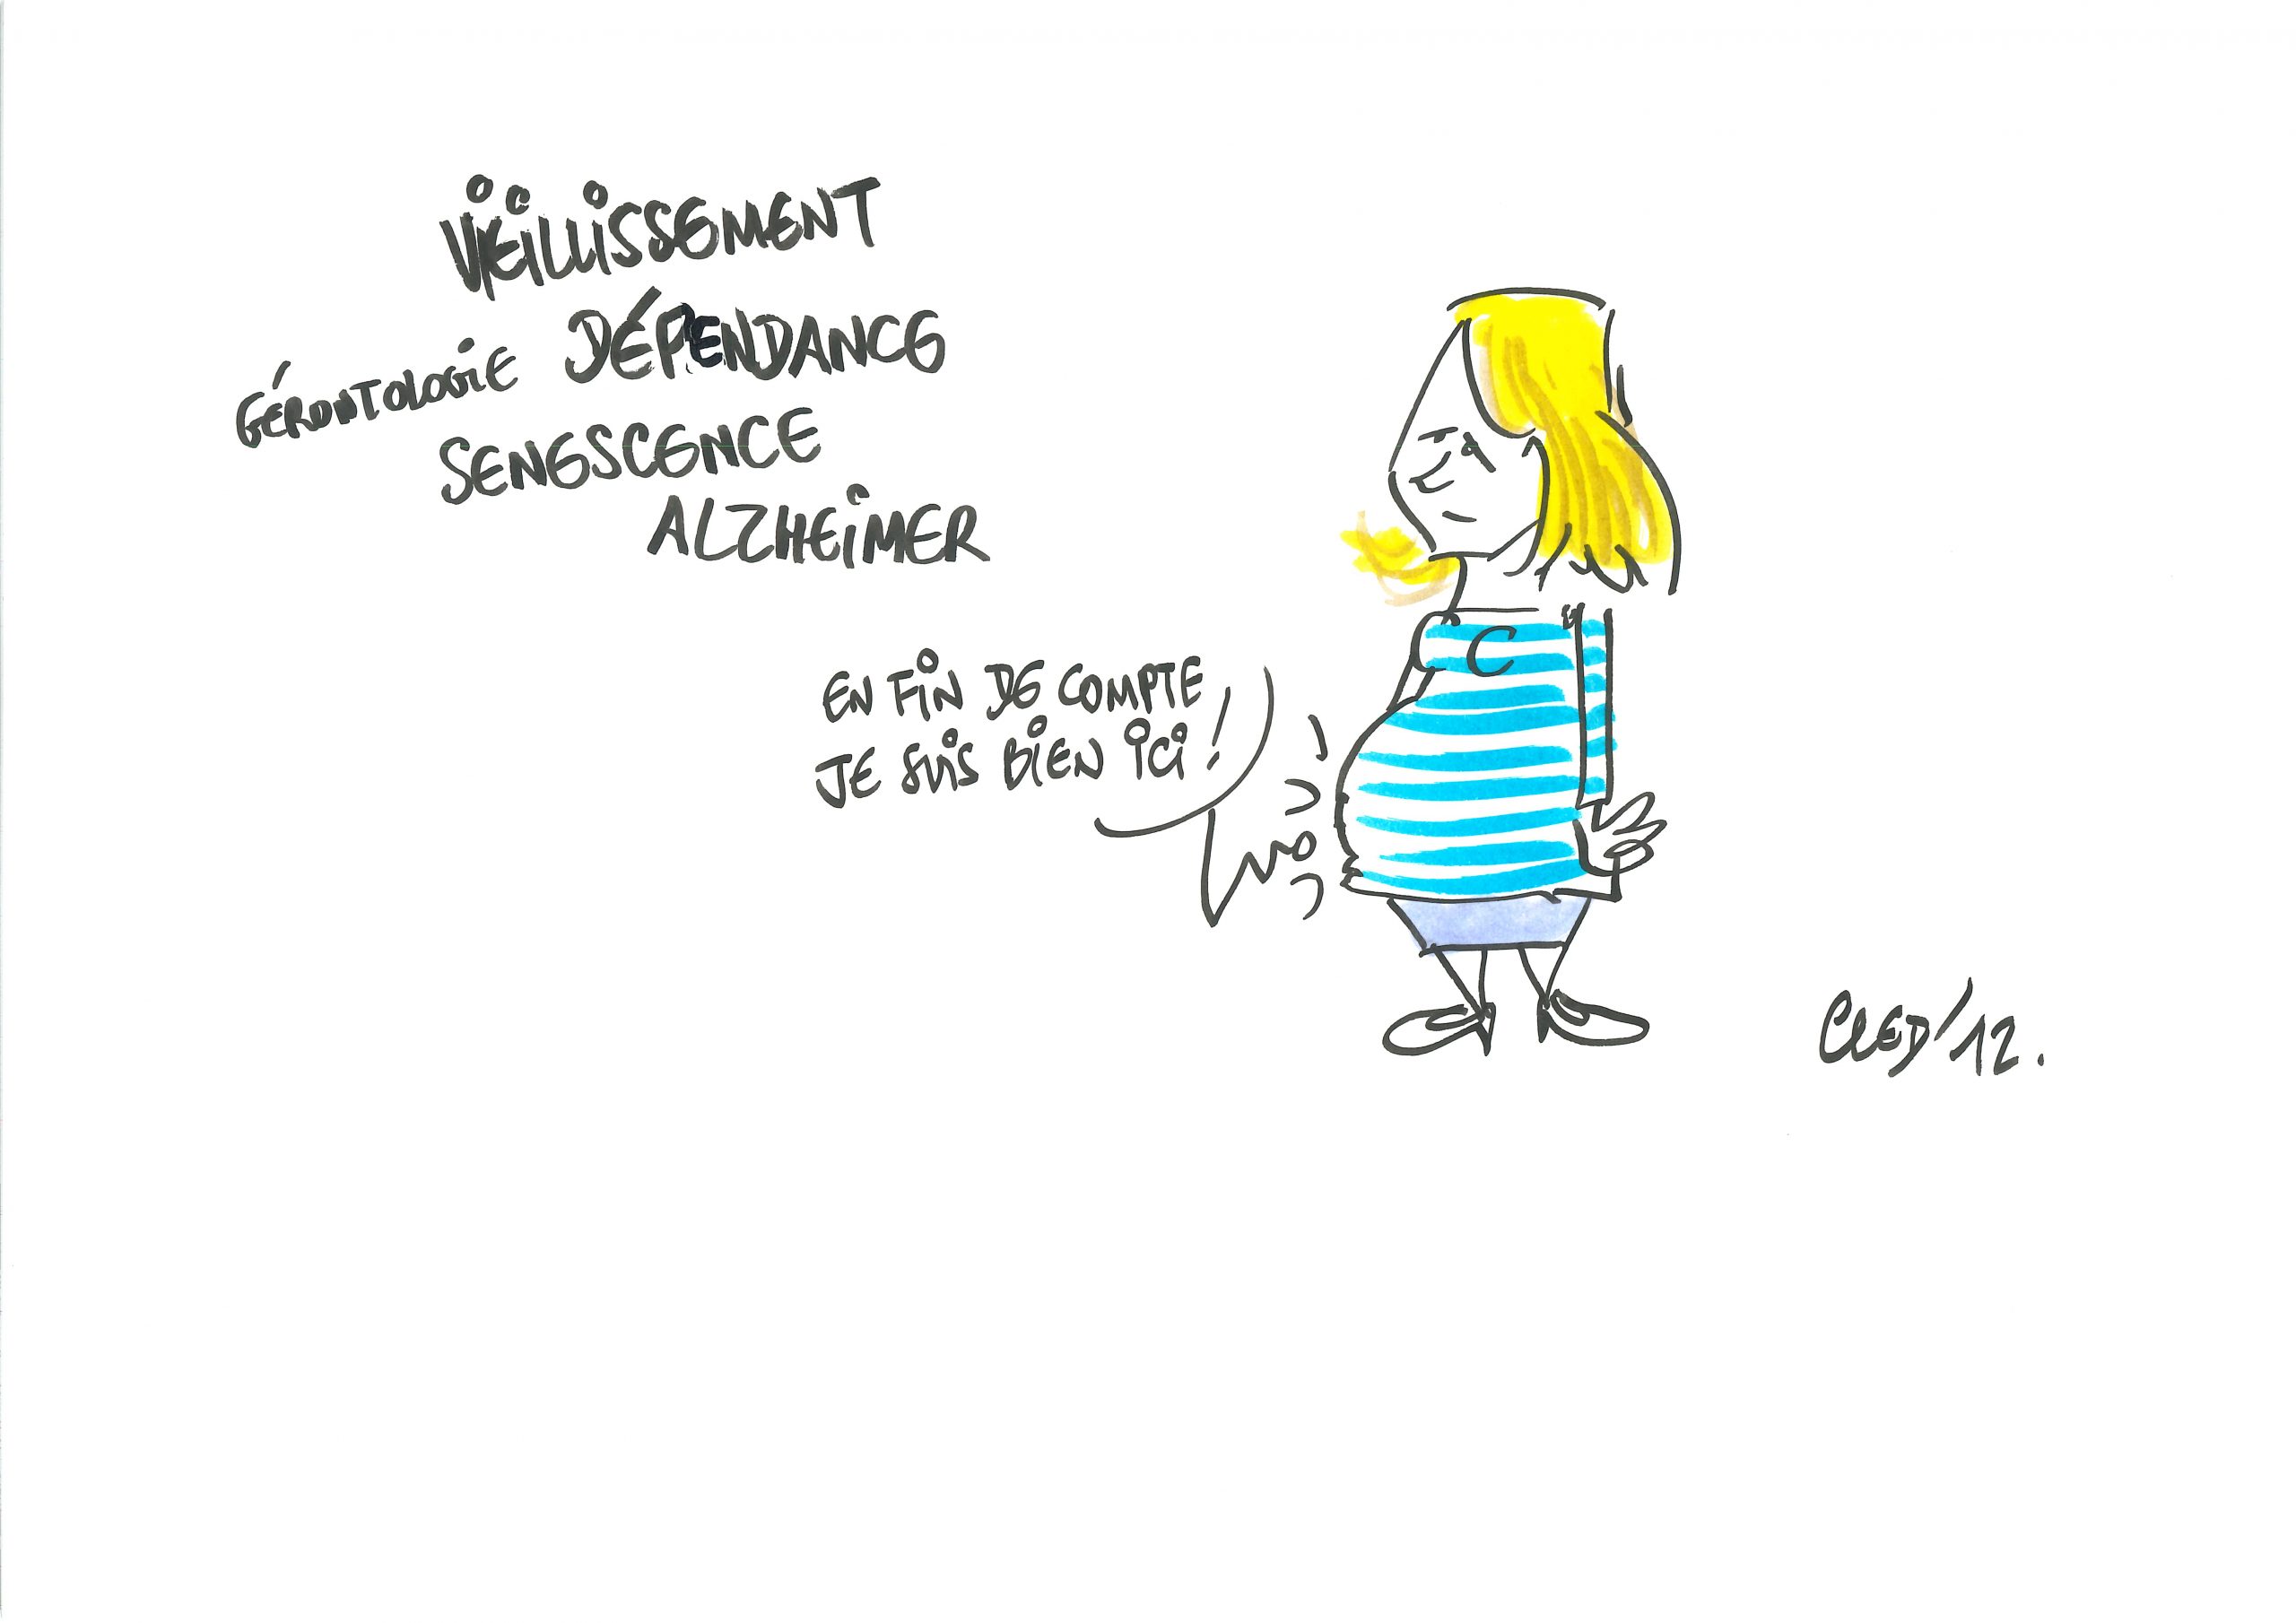 VIEILLISSEMENT
DÉPENDANCE
GÉRONTOLOGIE
SENESCENCE
ALZHEIMER
EN FIN DE COMPTE
JE SUIS BIEN ICI !
C
CLED'12.